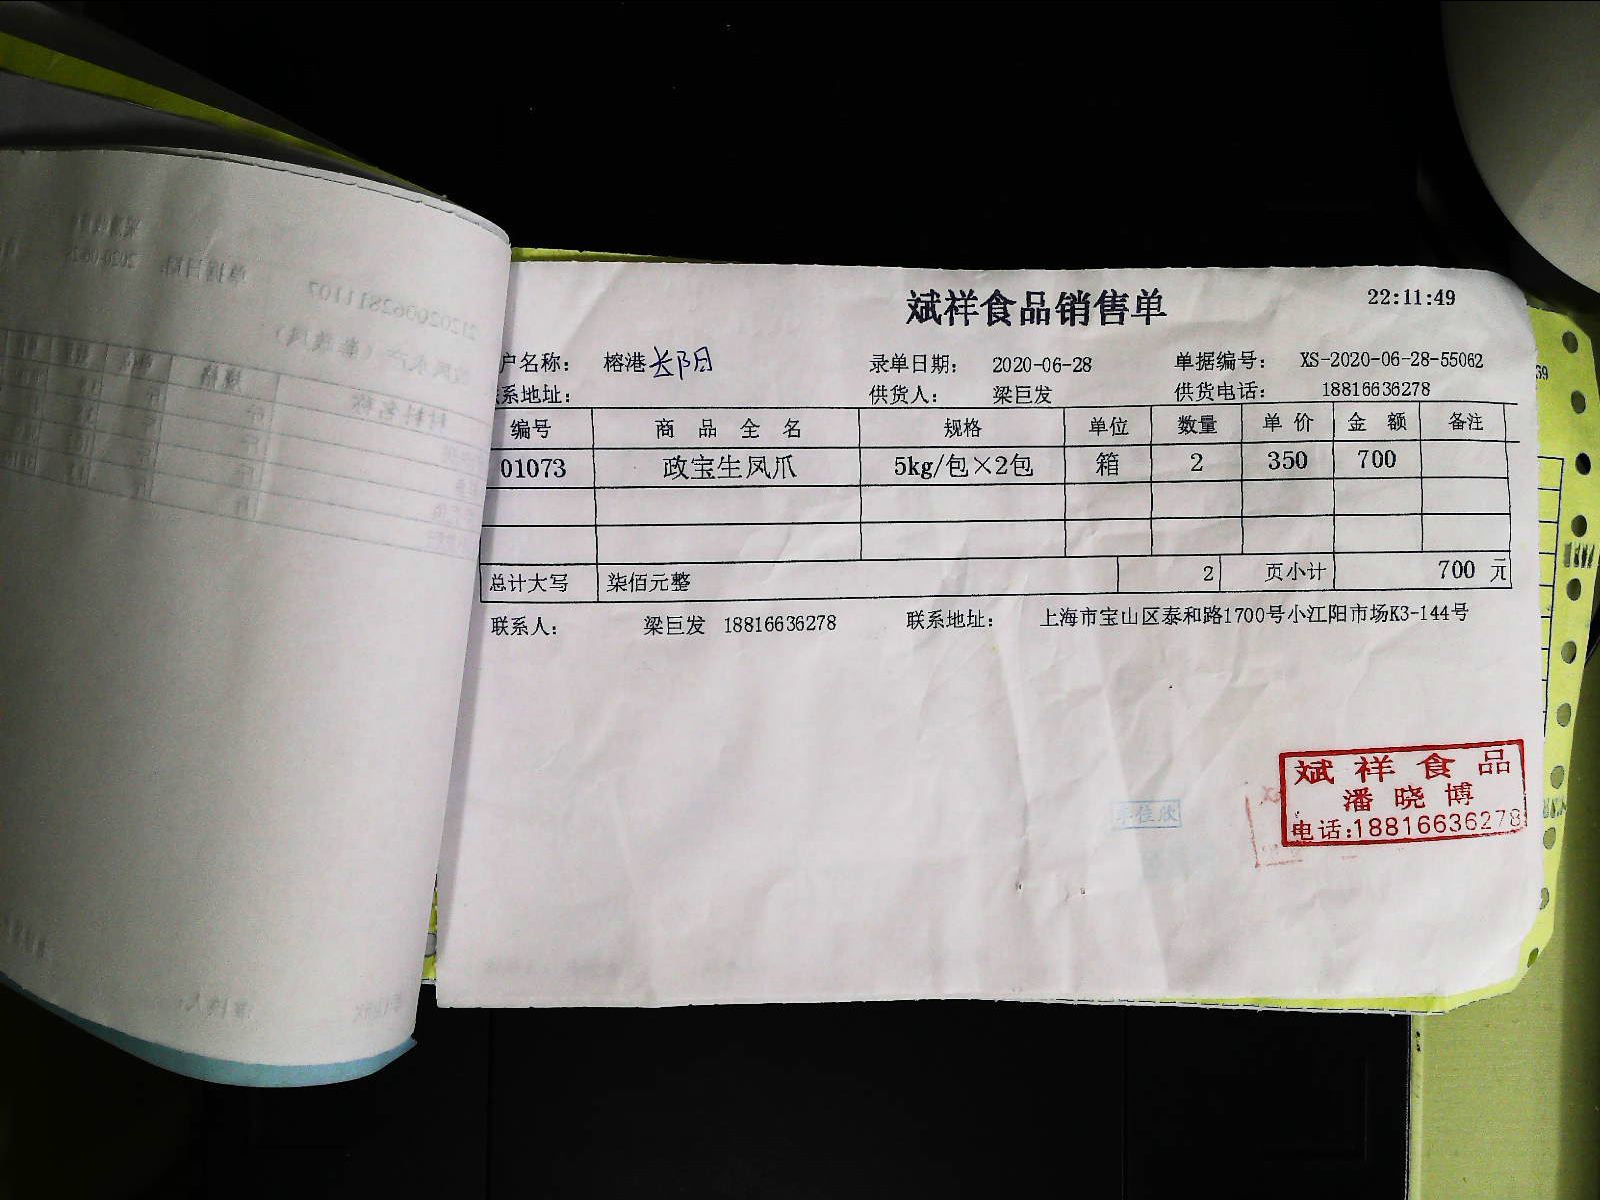 斌祥食品销售单 22:11:49
户名称： 榕港长阳 录单日期： 2020-06-28 单据编号： XS-2020-06-28-55062
系地址： 供货人： 梁巨发 供货电话： 18816636278
编号 商品全名 规格 单位 数量 单价 金额 备注
01073 政宝生凤爪 5kg/包×2包 箱 2 350 700
总计大写 柒佰元整 2 页小计 700 元
联系人： 梁巨发 18816636278 联系地址： 上海市宝山区泰和路1700号小江阳市场K3-144号
斌祥食品
潘晓博
电话:18816636278